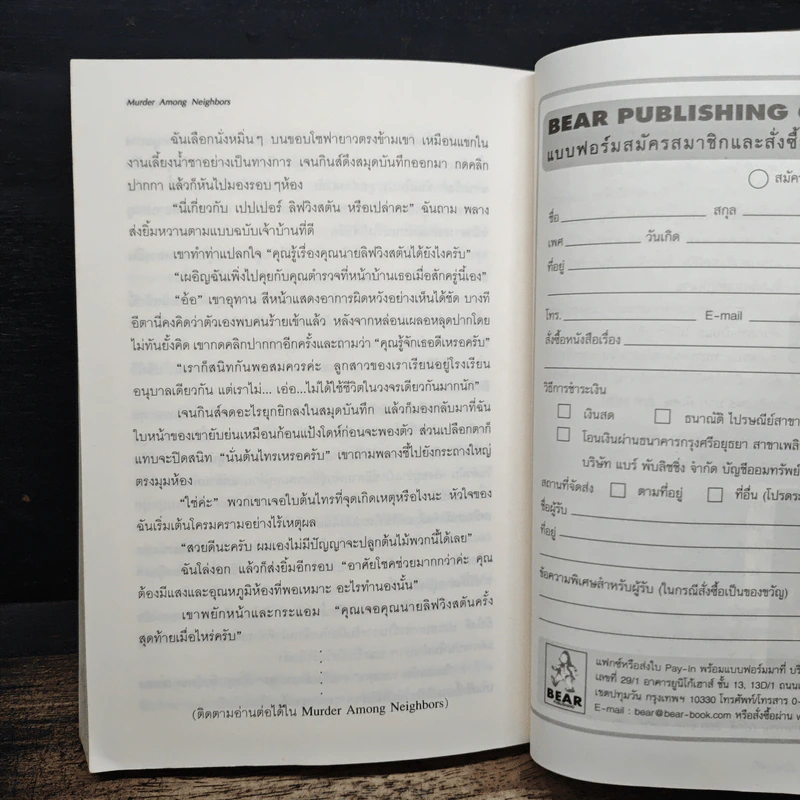 Murder Among Neighbors
ฉันเลือกนั่งหมิ่นๆ บนขอบโซฟายาวตรงข้ามเขา เหมือนแขกใน
งานเลี้ยงน้ำชาอย่างเป็นทางการ เจนกินส์ดึงสมุดบันทึกออกมา กดคลิก
ปากกา แล้วก็หันไปมองรอบๆห้อง
“นี่เกี่ยวกับ เปปเปอร์ ลิฟวิงสตัน หรือเปล่าคะ” ฉันถาม พลาง
ส่งยิ้มหวานตามแบบฉบับเจ้าบ้านที่ดี
เขาทำท่าแปลกใจ “คุณรู้เรื่องคุณนายลิฟวิงสตันได้ยังไงครับ”
“เผอิญฉันเพิ่งไปคุยกับคุณตำรวจที่หน้าบ้านเธอเมื่อสักครู่นี้เอง”
“อ้อ” เขาอุทาน สีหน้าแสดงอาการผิดหวังอย่างเห็นได้ชัด บางที
อีตานี่คงคิดว่าตัวเองพบคนร้ายเข้าแล้ว หลังจากหล่อนเผลอหลุดปากโดย
ไม่ทันยั้งคิด เขากดคลิกปากกาอีกครั้งและถามว่า “คุณรู้จักเธอดีเหรอครับ”
“เราก็สนิทกันพอสมควรค่ะ ลูกสาวของเราเรียนอยู่โรงเรียน
อนุบาลเดียวกัน แต่เราไม่... เอ่อ...ไม่ได้ใช้ชีวิตในวงจรเดียวกันมากนัก”
เจนกินส์จดอะไรยุกยิกลงในสมุดบันทึก แล้วก็มองกลับมาที่ฉัน
ใบหน้าของเขายับย่นเหมือนก้อนแป้งโดห์ก่อนจะพองตัว ส่วนเปลือกตาก็
แทบจะปิดสนิท “นั่นต้นไทรเหรอครับ” เขาถามพลางชี้ไปยังกระถางใหญ่
ตรงมุมห้อง
“ใช่ค่ะ” พวกเขาเจอใบต้นไทรที่จุดเกิดเหตุหรือไงนะ หัวใจของ
ฉันเริ่มเต้นโครมครามอย่างไร้เหตุผล
“สวยดีนะครับ ผมเองไม่มีปัญญาจะปลูกต้นไม้พวกนี้ได้เลย”
ฉันโล่งอก แล้วก็ส่งยิ้มอีกรอบ “อาศัยโชคช่วยมากกว่าค่ะ คุณ
ต้องมีแสงและอุณหภูมิห้องที่พอเหมาะ อะไรทำนองนั้น”
เขาพยักหน้าและกระแอม “คุณเจอคุณนายลิฟวิงสตันครั้ง
สุดท้ายเมื่อไหร่ครับ”
(ติดตามอ่านต่อได้ใน Murder Among Neighbors)
BEAR PUBLISHING
แบบฟอร์มสมัครสมาชิกและสั่งซื้อ
สมัคร
ชื่อ สกุล
เพศ วันเกิด
ที่อยู่
โทร. E-mail
สั่งซื้อหนังสือเรื่อง
วิธีการชำระเงิน
เงินสด ธนาณัติ ไปรษณีย์สาขา
โอนเงินผ่านธนาคารกรุงศรีอยุธยา สาขาเพลิ
บริษัท แบร์ พับลิชชิ่ง จำกัด บัญชีออมทรัพย์
สถานที่จัดส่ง ตามที่อยู่ ที่อื่น (โปรดระ
ชื่อผู้รับ
ที่อยู่
ข้อความพิเศษสำหรับผู้รับ (ในกรณีสั่งซื้อเป็นของขวัญ)
BEAR
แฟกซ์หรือส่งใบ Pay-In พร้อมแบบฟอร์มมาที่ บริ
เลขที่ 29/1 อาคารยูนิโก้เฮาส์ ชั้น 13, 13D/1 ถนน
เขตปทุมวัน กรุงเทพฯ 10330 โทรศัพท์/โทรสาร 0-
E-mail : bear@bear-book.com หรือสั่งซื้อผ่าน